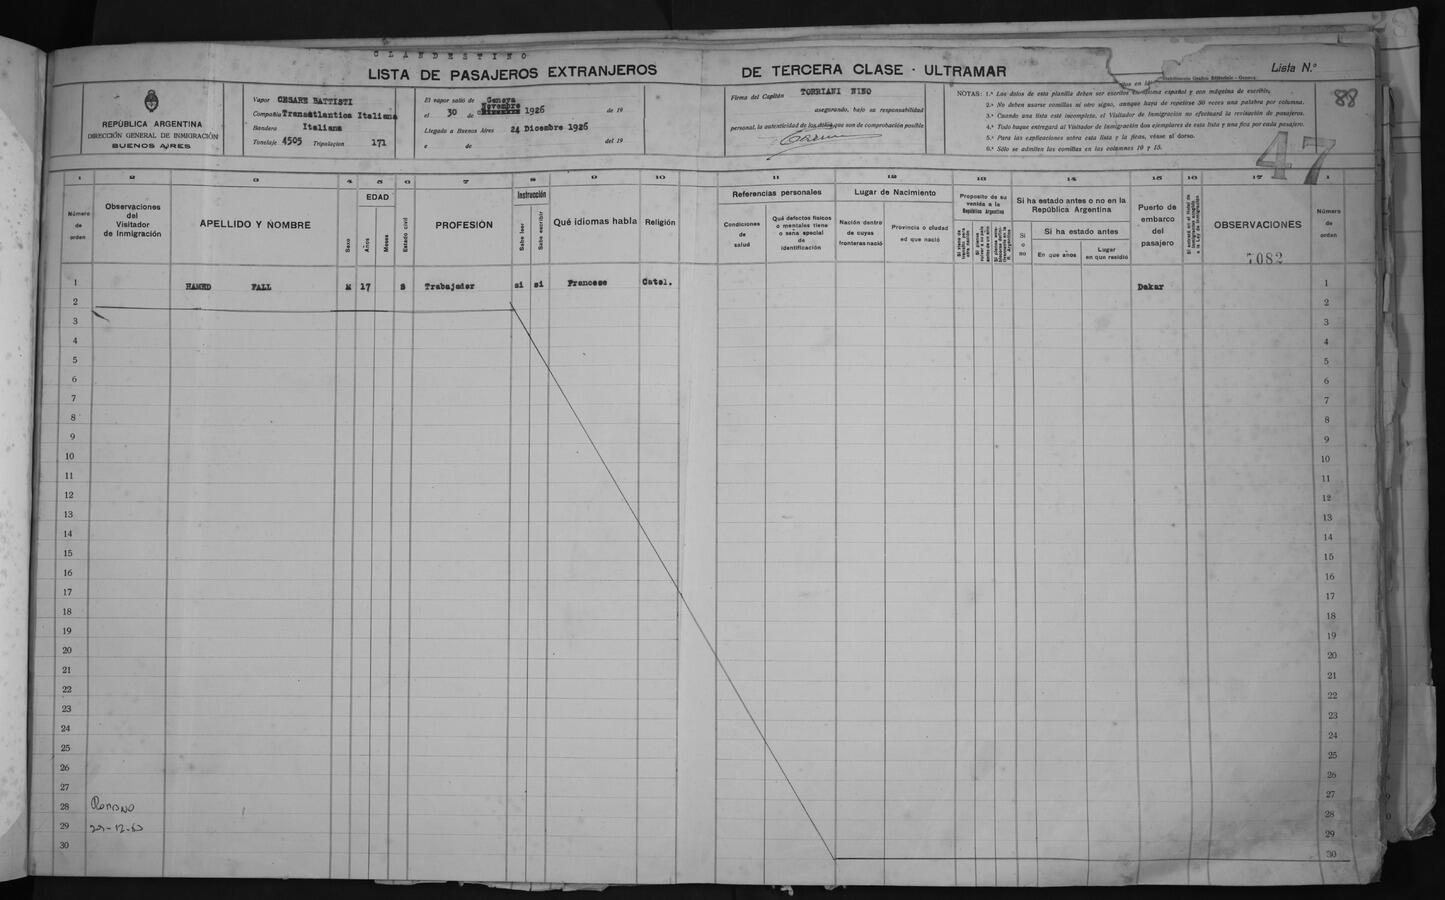 CLANDESTINO
LISTA DE PASAJEROS EXTRANJEROS DE TERCERA CLASE - ULTRAMAR
Lista N.º
88
47
REPÚBLICA ARGENTINA
DIRECCIÓN GENERAL DE INMIGRACIÓN
BUENOS AIRES
Vapor CESARE BATTISTI
Compañía Transatlantica Italiana
Bandera Italiana
Tonelaje 4505 Tripulacion 171
El vapor salió de Genova
el 30 de Novembre 1926 de 19
Llegado a Buenos Aires 24 Dicembre 1926
e de del 19
Firma del Capitán TORRIANI NINO
asegurando, bajo su responsabilidad
personal, la autenticidad de los datos que son de comprobación posible
NOTAS: 1.ª Los datos de esta planilla deben ser escritos en idioma español y con máquina de escribir.
2.ª No deben usarse comillas ni otro signo, aunque haya de repetirse 30 veces una palabra por columna.
3.ª Cuando una lista esté incompleta, el Visitador de Inmigración no efectuará la revisación de pasajeros.
4.ª Todo buque entregará al Visitador de Inmigración dos ejemplares de esta lista y una fica por cada pasajero.
5.ª Para las explicaciones sobre esta lista y la ficas, véase al dorso.
6.ª Sólo se admiten las comillas en las columnas 10 y 15.
1 2 3 4 5 6 7 8 9 10 11 12 13 14 15 16 17 1
Número de orden
Observaciones del Visitador de Inmigración
APELLIDO Y NOMBRE
Sexo
EDAD
Años
Meses
Estado civil
PROFESIÓN
Instrucción
Sabe leer
Sabe escribir
Qué idiomas habla
Religión
Referencias personales
Condiciones de salud
Qué defectos físicos o mentales tiene o seña special de identificación
Lugar de Nacimiento
Nación dentro de cuyas fronteras nació
Provincia o ciudad ed que nació
Proposito de su venida a la República Argentina
Si ha estado antes o no en la República Argentina
Si o no
Si ha estado antes
En que años
Lugar en que residió
Puerto de embarco del pasajero
OBSERVACIONES
7082
Número de orden
1 HAMED FALL M 17 S Trabajador si si Francese Catol. Dakar 1
2 2
3 3
4 4
5 5
6 6
7 7
8 8
9 9
10 10
11 11
12 12
13 13
14 14
15 15
16 16
17 17
18 18
19 19
20 20
21 21
22 22
23 23
24 24
25 25
26 26
27 27
28 28
29 29
30 30